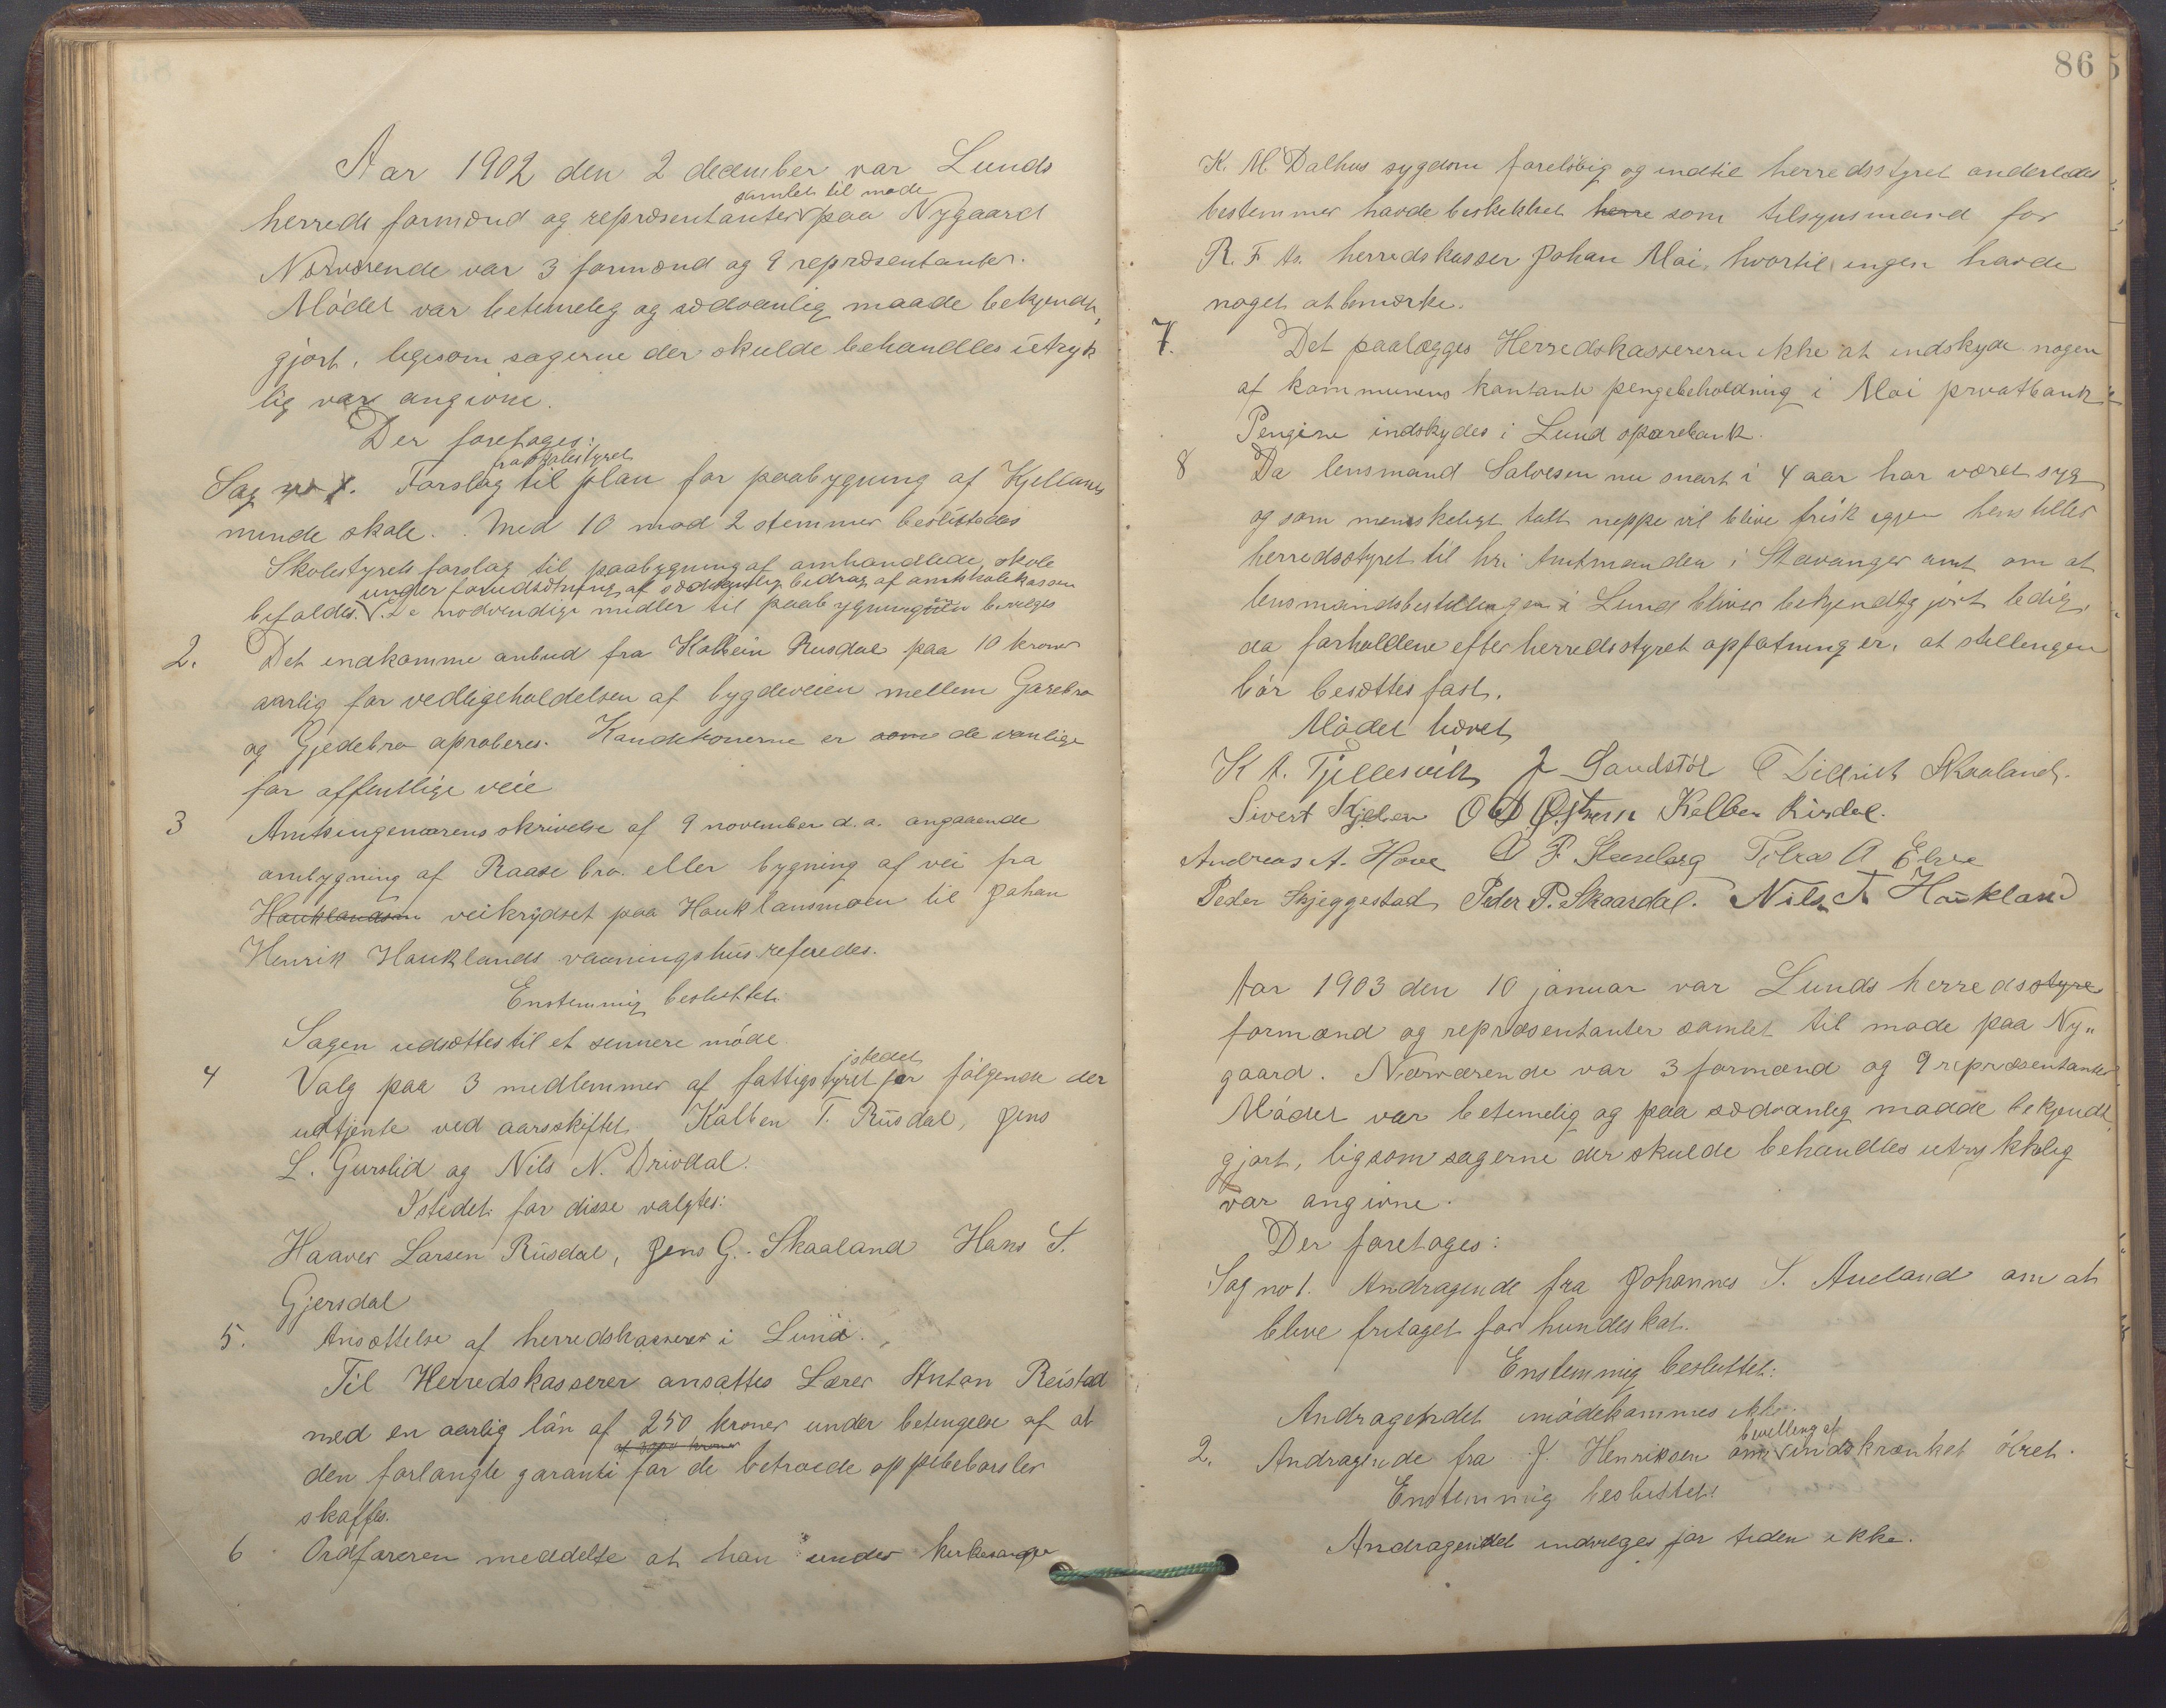 Aar 1902 den 2 december var Lunds
samlet til møde
herreds formænd og repræsentanter paa Nygaard
Nærværende var 3 formænd og 9 repræsentanter.
Mödet var betimelig og sædvanlig maade bekjendt,
gjort, ligesom sagerne der skulde behandles utryk
lig var angivne.
Der foretages:
fra skolestyret
Sag no 1. Forslag til plan for paabygning af Kjellands
minde skole. Med 10 mod 2 stemmer besluttedes
Skolestyrets forslag til paabygning af omhandlede skole
under forudsætning af sædvanlig bidrag af amtsskolekassen
befaldes. De nødvendige midler til paabygningen bevilges
2. Det indkomne anbud fra Kolbein Rusdal paa 10 kroner
aarlig for vedligeholdelsen af bygdeveien mellem Garebro
og Gjedebro aproberes. Konditionerne er som de vanlige
for offentlige veie
3 Amtsingeniørens skrivelse af 9 november d.a. angaaende
ombygning af Raase bro eller bygning af vei fra
Hauklandsm veikrydset paa Hauklansmoen til Johan
Henrik Hauklands vaaningshus referedes.
Enstemmig besluttet:
Sagen udsættes til et sennere møde
istedet
4 Valg paa 3 medlemmer af fattigstyret for fölgende der
udtjente ved aarsskiftet. Kolben T. Rusdal, Jens
L. Gurslid og Nils N. Drivdal.
Istedet for disse valgtes:
Haaver Larsen Rusdal, Jens G. Skaaland Hans S.
Gjersdal
5. Ansættelse af herredskasserer i Lund.
Til Herredskasserer ansattes Lærer Anton Reistad
med en aarlig lön af 250 kroner under betingelse af at
af 3000 kroner
den forlangte garanti for de betroede oppebebørsler
skaffes.
6 Ordføreren meddelte at han under kirkesanger
86
K. M. Dalhus sygdom forelöbig og indtil herredsstyret anderledes
bestemmer havde beskikket herre som tilsynsmand for
R. F. As. herredskasser Johan Moi, hvortil ingen havde
noget at bemærke.
7. Det paalægges Herredskassereren ikke at indskyde nogen
af kommunens kontante pengebeholdning i Moi privatbank
Pengene indskydes i Lund sparebank.
8 Da lensmand Salvesen nu snart i 4 aar har været syg
og som menskeligt talt neppe vil blive frisk igjen henstilles
herredsstyret til hr. Amtmanden i Stavanger amt om at
lensmandsbestillingen i Lund bliver bekjendtgjört ledig,
da forholdene efter herredsstyret opfatning er, at stillingen
bör besættes fast.
Mödet hævet
K A. Tjellesvik J Sandstöl T Didrick Skaaland.
Sivert Kjelen O A Östrem Kolben Rusdal.
Andreas A. Hove O P. Steenberg Tobias A Elve
Peder Skjeggestad Peder P. Skaardal. Nils T Haukland
Aar 1903 den 10 januar var Lunds herredsstyre
formænd og repræsentanter samlet til møde paa Ny„
gaard. Nærværende var 3 formænd og 9 repræsentanter
Mödet var betimelig og paa sædvanlig maade bekjendt
gjort, ligsom sagerne der skulde behandles utrykkelig
var angivne.
Der foretages:
Sag no 1. Andragende fra Johannes S. Aueland om at
blive fritaget for hundeskat.
Enstemmig besluttet:
Andragendet imödekommes ikke.
bevilling af
2. Andragende fra J. Henriksen om indskrænket ölret.
Enstemmig besluttet:
Andragendet indvilges for tiden ikke.